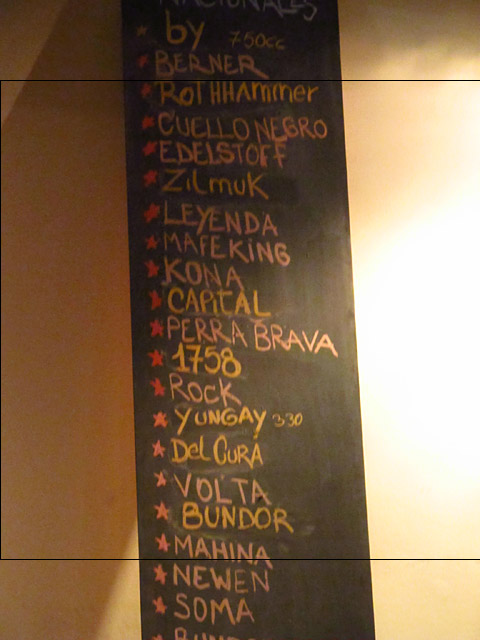 NACIONALES
by 750cc
BERNER
ROTHHAmmer
CUELLO NEGRO
EDELSTOFF
Zilmuk
LEYENDA
MAFEKING
KONA
CAPITAL
PERRA BRAVA
1758
ROCK
YUNGAY 330
Del CURA
VOLTA
BUNDOR
MAHINA
NEWEN
SOMA